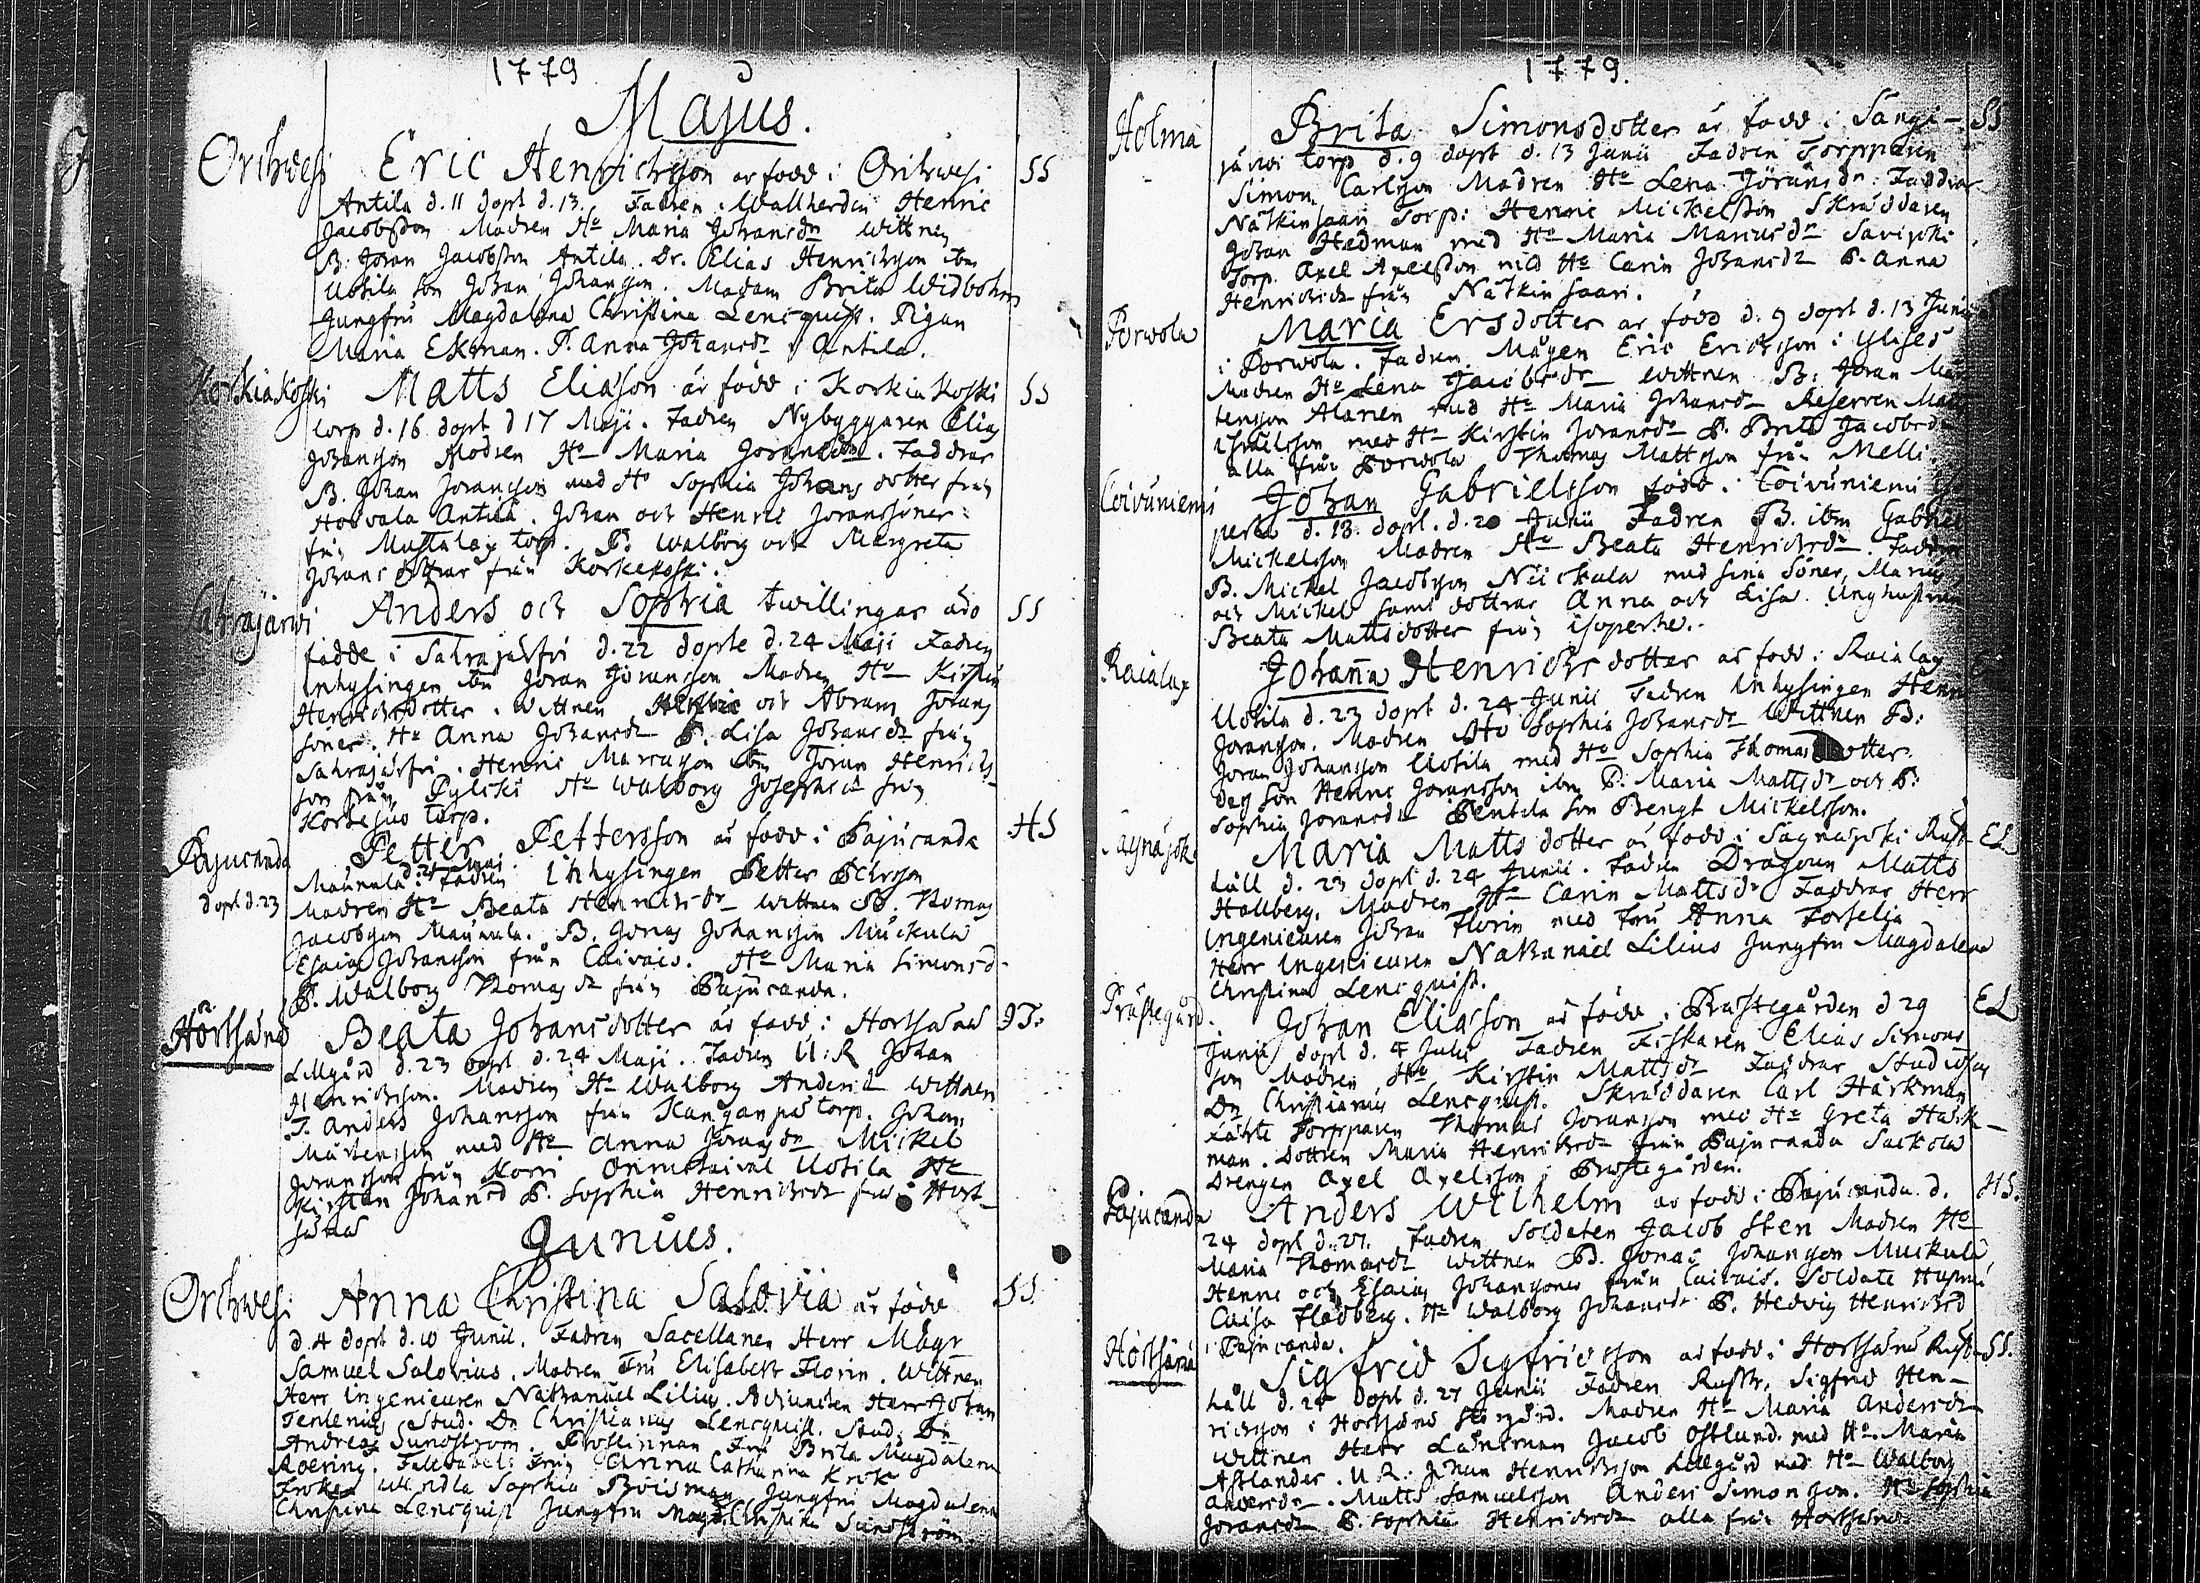 1779
Majus.
Orihwesi
Eric Henrichsson är född i Orihwesi SS
Antila d. 11 döpt d. 13. Fadren Wallherden Henric
Jacobsson Modren Ho Maria Johansdr Wittnen
B. Jöran Jacobsson Antila. Dr. Elias Henrichsson ibm
Uotila son Johan Johansson. Madam Brita Widbohm
Jungfru Magdalena Christina Lencquist. Pigan
Maria Ekman. P. Anna Johansdr i Antila.
Korkiakoski
Matts Eliasson är född i Korkiakoski SS
torp d. 16 döpt d 17 Maji. Fadren Nybyggaren Elias
Johansson Modren Ho Maria Göransdr. Faddrar
B. Johan Jöransson med Ho Sophia Johans dotter från
Antila. Johan och Henric Jöranssöner
från Mustalax torp. P. Walborg och Margreta
Johans döttrar från Korkekoski.
Sahrajärwi
Anders och Sophia twillingar äro SS
födde i Sahrajärfwi d. 22 döpte d. 24 Maji Fadren
Inhysingen ibm Jöran Jöransson Modren Ho Kirstin
Henrichsdotter. Wittnen Henric och Abram Jörans
söner. Ho Anna Johansdr P. Lisa Johansdr från
Sahrajärfwi. Henric Marcusson ibm Jöran Henrichs-
son från Pyliski Ho Walborg Josephsdr från
torp.
Pajucanda
döpt d. 23
Petter Pettersson är född i Pajucanda HS
d. 21 Maj
Maunula. Fadren Inhysingen Petter Pehrsson
Modren Ho Beata Henrichsdr Wittnen B. Thomas
Jacobsson Maunula. B. Jonas Johansson Muckula
Esaias Johansson från Caivais. Ho Maria Simonsd-
P. Walborg Thomasdr från Pajucanda.
Hörtsänä
Beata Johansdotter är född i Hörtsänä JT.
Lillgård d. 23 döpt d. 24 Maji. Fadren U: R Johan
Henrichsson. Modren Ho Walborg Andersdr Wittnen
T. Anders Johansson från Kanganpä torp. Johan
Mårtensson med Ho Anna Jöransdr Mickel
Jöransson från Korri Uotila Ho
Kirstin Johansd P. Sophia Henrichsdr från Hört-
sänä
Junius.
Orihwesi
Anna Christina Salovia är född SS.
d. 4 döpt d. 10 Junii. Fadren Sacellanen Herr Magr
Samuel Salovius. Modren Fru Elisabeth Florin. Wittnen
Herr Ingenieuren Nathanael Lilius. Adjuncten Herr Johan
Tenlenius Stud. Dn Christianus Lencquist. Stud. Dn
Andreas Sundström. Prostinnan Fru Brita Magdalena
Roering. Fältväbel: Frun Anna Catharina Krok
Fröken Sophia Boisman Jungfru Magdalena
Christina Lencquist Jungfru Magd. Christina Sundström
1779.
Holma
Brita Simonsdotter är född i Sängi- SS
järwi torp d. 9 döpt d. 13 Junii Fadren Torpparen
Simon Carlsson Modren Ho Lena Jöransdr: Faddrar
Nätkinsaari Torp: Henric Mickelsson Skräddaren
Johan Hedman med Ho Maria Marcusdr Savijoki
Torp. Axel Axelsson med Ho Carin Johansdr P. Anna
Henrichsdr från Nätkinsaari.
Porwola
Maria Ersdotter är född d. 9 döpt d. 13 Junii
i Porwola. Fadren Mågen Eric Ericsson i
Modren Ho Lena Jacobsdr Wittnen B: Jöran
tensson Alanen med Ho Maria Johansdr Reserven
Israelsson med Ho Kirstin Jöransdr P. Brita Jacobsdr
alla från Porwola Thomas Mattsson från Melli.
Coivuniemi
Johan Gabrielsson född i Coivuniemi
perhe d. 13. döpt. d. 20 Junii Fadren B. ibm Gabriel
Mickelsson Modren Ho Beata Henrichsdr. Faddrar
B. Mickel Jacobsson Niickala med sina söner, Marcus
och Mickel samt döttrar Anna och Lisa.
Beata Mattsdotter från isoperhe.
Raialax
Johanna Henrichsdotter är född i Raialax
Uotila d. 23 döpt d. 24 Junii Fadren Inhysingen Henric
Jöransson. Modren Ho Sophia Johansdr Wittnen B:
Jöran Johansson Uotila med Ho Sophia Thomasdotter.
des son Henric Jöransson ibm P. Maria Mattsdr och P:
Sophia Jöransdr Pentila son Bengt Mickelsson.
Säynäjok:
Maria Mattsdotter är född i Säynäjoki Rust- EL
håll d. 23 döpt d. 24 Junii. Fadren Dragoun Matts
Hallberg. Modren Ho Carin Mattsdr Faddrar Herr
Ingenieuren Johan Florin med Fru Anna Forselia
Herr Ingenieuren Nathanael Lilius Jungfru Magdalena
Christina Lencquist.
Prästegård.
Johan Eliasson är född i Prästegården d 29 EL
Junii döpt d. 4 Julii Fadren Fiskaren Elias Simons
son Modren Ho Kirstin Mattsdr Faddrar Studiosus
Dn Christianus Lencquist. Skräddaren Carl Härkman
Torpparen Thomas Jöransson med Ho Greta Härk-
man. Dottren Maria Henrichsdr från Pajucanda
Drengen Axel Axelsson i Prästegården.
Pajucanda
Anders Wilhelm är född i Pajucanda. d. HS.
24 döpt d. 27. Fadren Soldaten Jacob Sten Modren Ho
Maria Thomasdr Wittnen B. Jonas Johansson Muckula
Henric och Esaias Johanssoner från Caivais. Soldate Hustru
Caisa Flodberg. Ho Walborg Johansdr P. Hedvig Henrichsd
i Pajucanda.
Hörtsänä
Sigfrid Sigfridsson är född i Hörtsänä Rust- SS.
håll d. 25 döpt d. 27 Junii Fadren Rusth. Sigfrid Hen-
richsson i Hörtsänä Storgård. Modren Ho Maria Andersdr
Wittnen Herr Länsman Jacob Östlund. med Ho. Maria
Astlander. U. R.: Johan Henrichsson Lillgård med Ho Walborg
Andersdr. Matts Samuelsson Anders Simonsson. Ho Sophia
Jöransdr P. Sophia Henrichsdr alla från Hörtsänä.